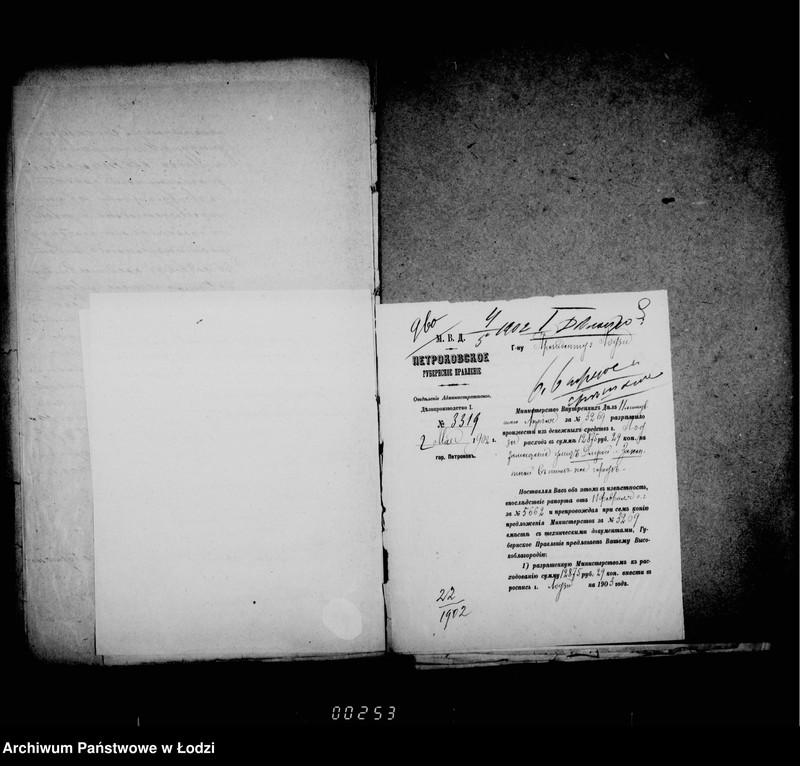 4/5 1902 I
М. В. Д.
ПЕТРОКОВСКОЕ
ГУБЕРНСКОЕ ПРАВЛЕНІЕ
Отдѣленіе Административное.
Дѣлопроизводство I.
№ 3319
2 Мая 1902 г.
гор. Петроковъ.
22/1902
Г-ну Президенту г. Лодзи
Министерство Внутреннихъ Дѣлъ
Апрѣля за № 3269 разрѣшило
произвести изъ денежныхъ средствъ г. Лод
зи расходъ въ суммѣ 12875 руб. 29 коп. на
замощеніе улицъ
городѣ.
Поставляя Васъ объ этомъ въ извѣстность,
впослѣдствіе рапорта отъ 11 Февраля с.г.
за № 5662 и препровождая при семъ копію
предложенія Министерства за № 3269
вмѣстѣ съ техническими документами, Гу-
бернское Правленіе предлагаетъ Вашему Высо-
коблагородію:
1) разрѣшенную Министерствомъ къ рас-
ходованію сумму 12875 руб. 29 коп. внести въ
роспись г. Лодзи на 1903 годъ.
00253
Archiwum Państwowe w Łodzi